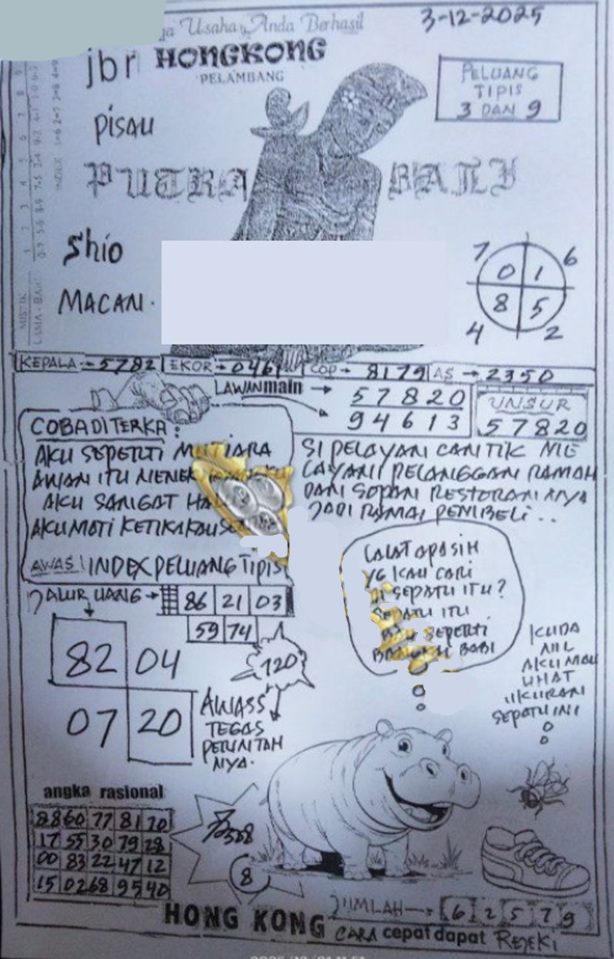 Usaha Anda Berhasil
3-12-2025
jbr HONGKONG
PELAMBANG
PELUANG
TIPIS
3 DAN 9
PISAU
PUTRA BALI
Shio
MACAN.
7 6
0 1
8 5
4 2
KEPALA → 5782 EKOR → 0461 COP → 8179 AS → 2350
LAWAN main →
57820
94613
UNSUR
57820
COBA DITERKA:
AKU SEPERTI MUTIARA
AWAN ITU
AKU SANGAT
AKU MATI KETIKA
SI PELAYAN CANTIK ME
LAYANI PELANGGAN RAMAH
DAN SOPAN RESTORAN NYA
JADI RAMAI PEMBELI..
AWAS! INDEX PELUANG TIPIS
JALUR UANG → 86 21 03
59 74
82 04
07 20
120
AWASS
TEGAS
PERINTAH
NYA.
LALAT APASIH
YG KAU CARI
SEPATU ITU?
SEPATU ITU
BAU SEPERTI
BANGKAI BABI
KUDA
NIL
AKU MAU
LIHAT
UKURAN
SEPATU INI
angka rasional
8860 77 81 70
17 55 30 79 28
00 83 22 47 12
15 02 68 95 40
8
JUMLAH → 6 2 5 7 9
HONG KONG CARA cepat dapat REJEKI